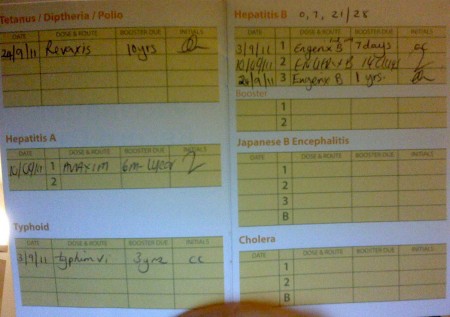 Tetanus / Diptheria / Polio
DATE DOSE & ROUTE BOOSTER DUE INITIALS
24/9/11 Revaxis 10yrs
Hepatitis A
DATE DOSE & ROUTE BOOSTER DUE INITIALS
10/09/11 1 AVAXIM 6m-1year
2
Typhoid
DATE DOSE & ROUTE BOOSTER DUE INITIALS
3/9/11 typhim vi 3yrs cc
Hepatitis B 0, 7, 21/28
DATE DOSE & ROUTE BOOSTER DUE INITIALS
3/9/11 1 Engerix B 7 days cc
10/09/11 2 ENGERIX B 14 days
24/9/11 3 Engerix B 1 yrs.
Booster
1
2
Japanese B Encephalitis
DATE DOSE & ROUTE BOOSTER DUE INITIALS
1
2
3
B
Cholera
DATE DOSE & ROUTE BOOSTER DUE INITIALS
1
2
B